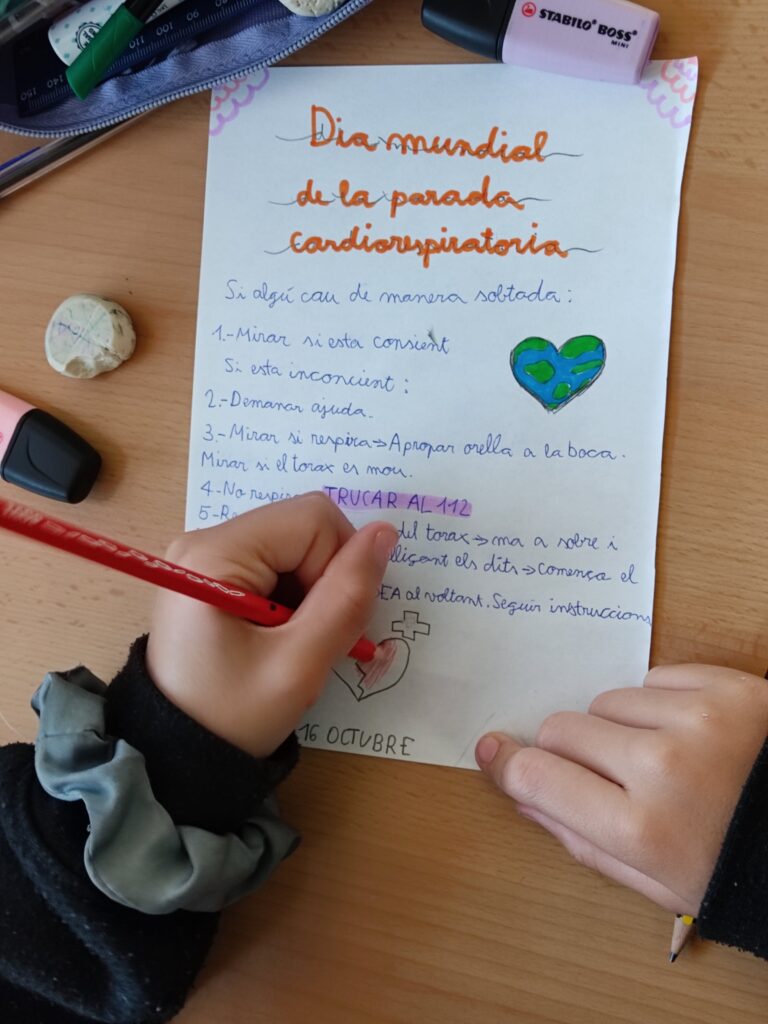 STABILO BOSS
MINI
Dia mundial
de la parada
cardiorespiratoria
Si algú cau de manera sobtada:
1.-Mirar si esta consient
Si esta inconcient:
2.-Demanar ajuda.
3.-Mirar si respira→Apropar orella a la boca.
Mirar si el torax es mou.
4-No respira TRUCAR AL 112
5-
del torax→ma a sobre i
els dits→comença el
al voltant. Seguir instruccions
16 OCTUBRE